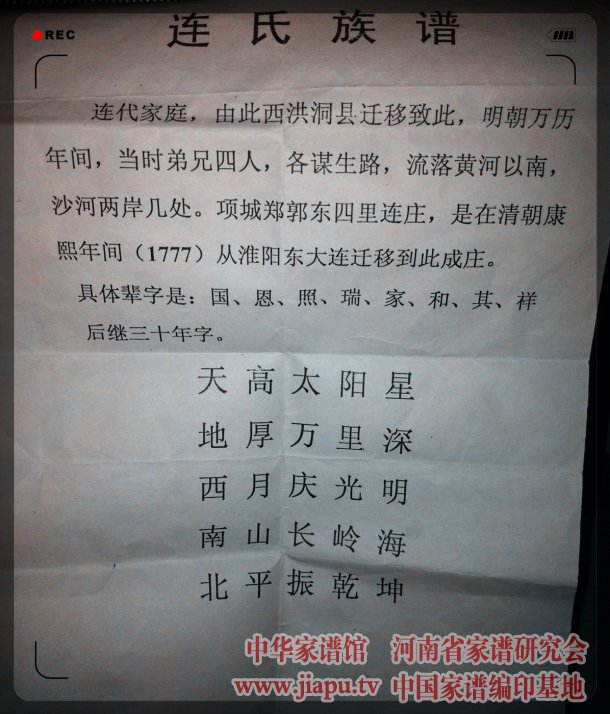 REC
连氏族谱
连代家庭，由此西洪洞县迁移致此，明朝万历
年间，当时弟兄四人，各谋生路，流落黄河以南，
沙河两岸几处。项城郑郭东四里连庄，是在清朝康
熙年间（1777）从淮阳东大连迁移到此成庄。
具体辈字是：国、恩、照、瑞、家、和、其、祥
后继三十年字。
天高太阳星
地厚万里深
西月庆光明
南山长岭海
北平振乾坤
中华家谱馆 河南省家谱研究会
www.jiapu.tv 中国家谱编印基地